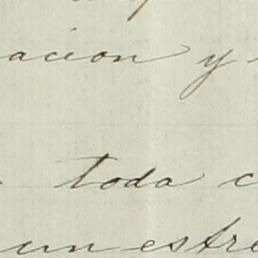 acion y
toda c
un estre